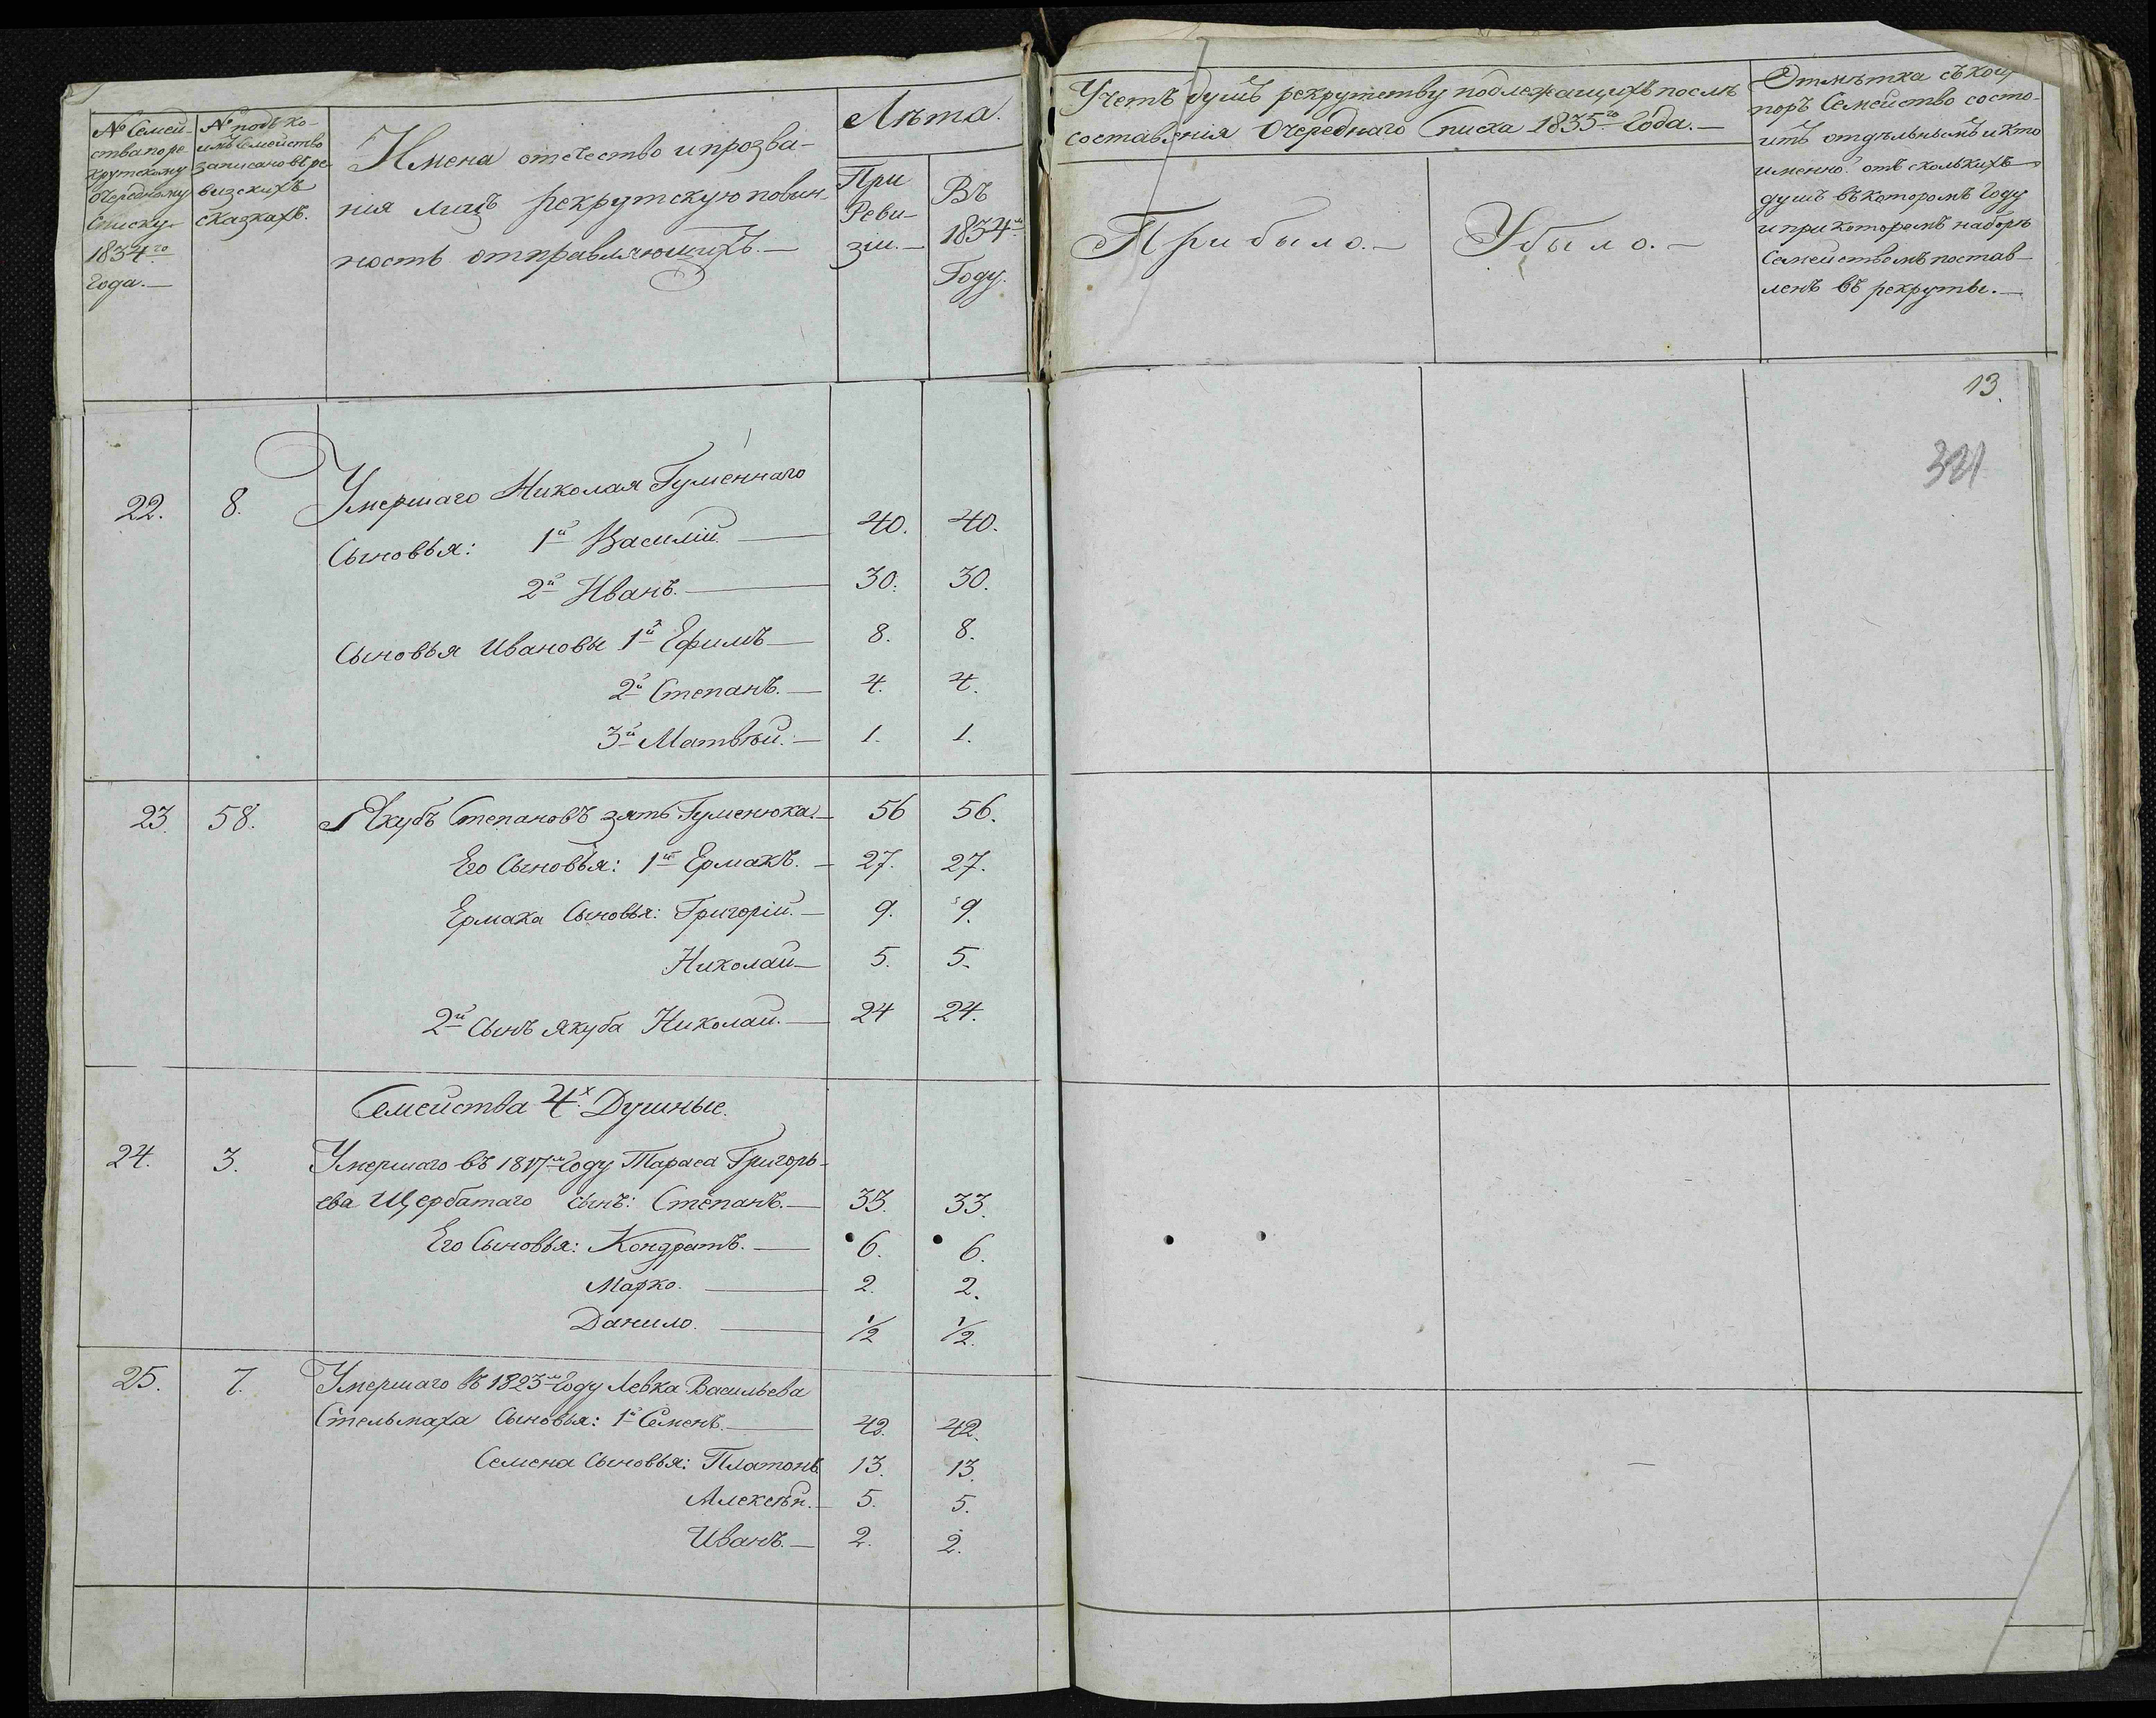 № Семей-
ства по ре-
крутскому
очередному
Списку
1834го
года.—
№ подъ ко-
имъ Семейство
записано въ ре-
визскихъ
сказкахъ.
Имена отечество и прозва-
ния лицъ рекрутскую повин-
ность отправляющихъ.—
Лѣта.
При
Реви-
зіи.—
Въ
1834м
Году.
Учетъ душъ рекрутству подлежащихъ послѣ
составленія Очереднаго Списка 1835го Года.—
Прибыло.—
Убыло.—
Отмѣтка съ кои
поръ Семейство состо-
итъ отдѣльнымъ и кто
именно отъ сколькихъ
душъ въ которомъ Году
и при которомъ наборѣ
Семействомъ постав-
ленъ въ рекруты.—
13.
321
22. 8. Умершаго Николая Гуменнаго
Сыновья: 1й Василій — 40. 40.
2й Иванъ. — 30. 30.
Сыновья Ивановы 1й Ефимъ — 8. 8.
2й Степанъ. — 4. 4.
3й Матвѣй. — 1. 1.
23. 58. Якубъ Степановъ зять Гуменюка — 56 56.
Его Сыновья: 1й Ермакъ. — 27. 27.
Ермака Сыновья: Григорій. — 9. 9.
Николай — 5. 5.
2й Сынъ Якуба Николай. — 24 24.
Семейства 4х Душные.
24. 3. Умершаго въ 1817м Году Тараса Григорь-
ева Щербатаго сынъ: Степанъ. — 33. 33.
Его Сыновья: Кондратъ. — 6. 6.
Марко. — 2. 2.
Данило. — 1/2 1/2.
25. 7. Умершаго въ 1823м Году Левка Васильева
Стельмаха Сыновья: 1й Семенъ. — 42. 42.
Семена Сыновья: Платонъ 13. 13.
Алексѣй. — 5. 5.
Иванъ. — 2. 2.